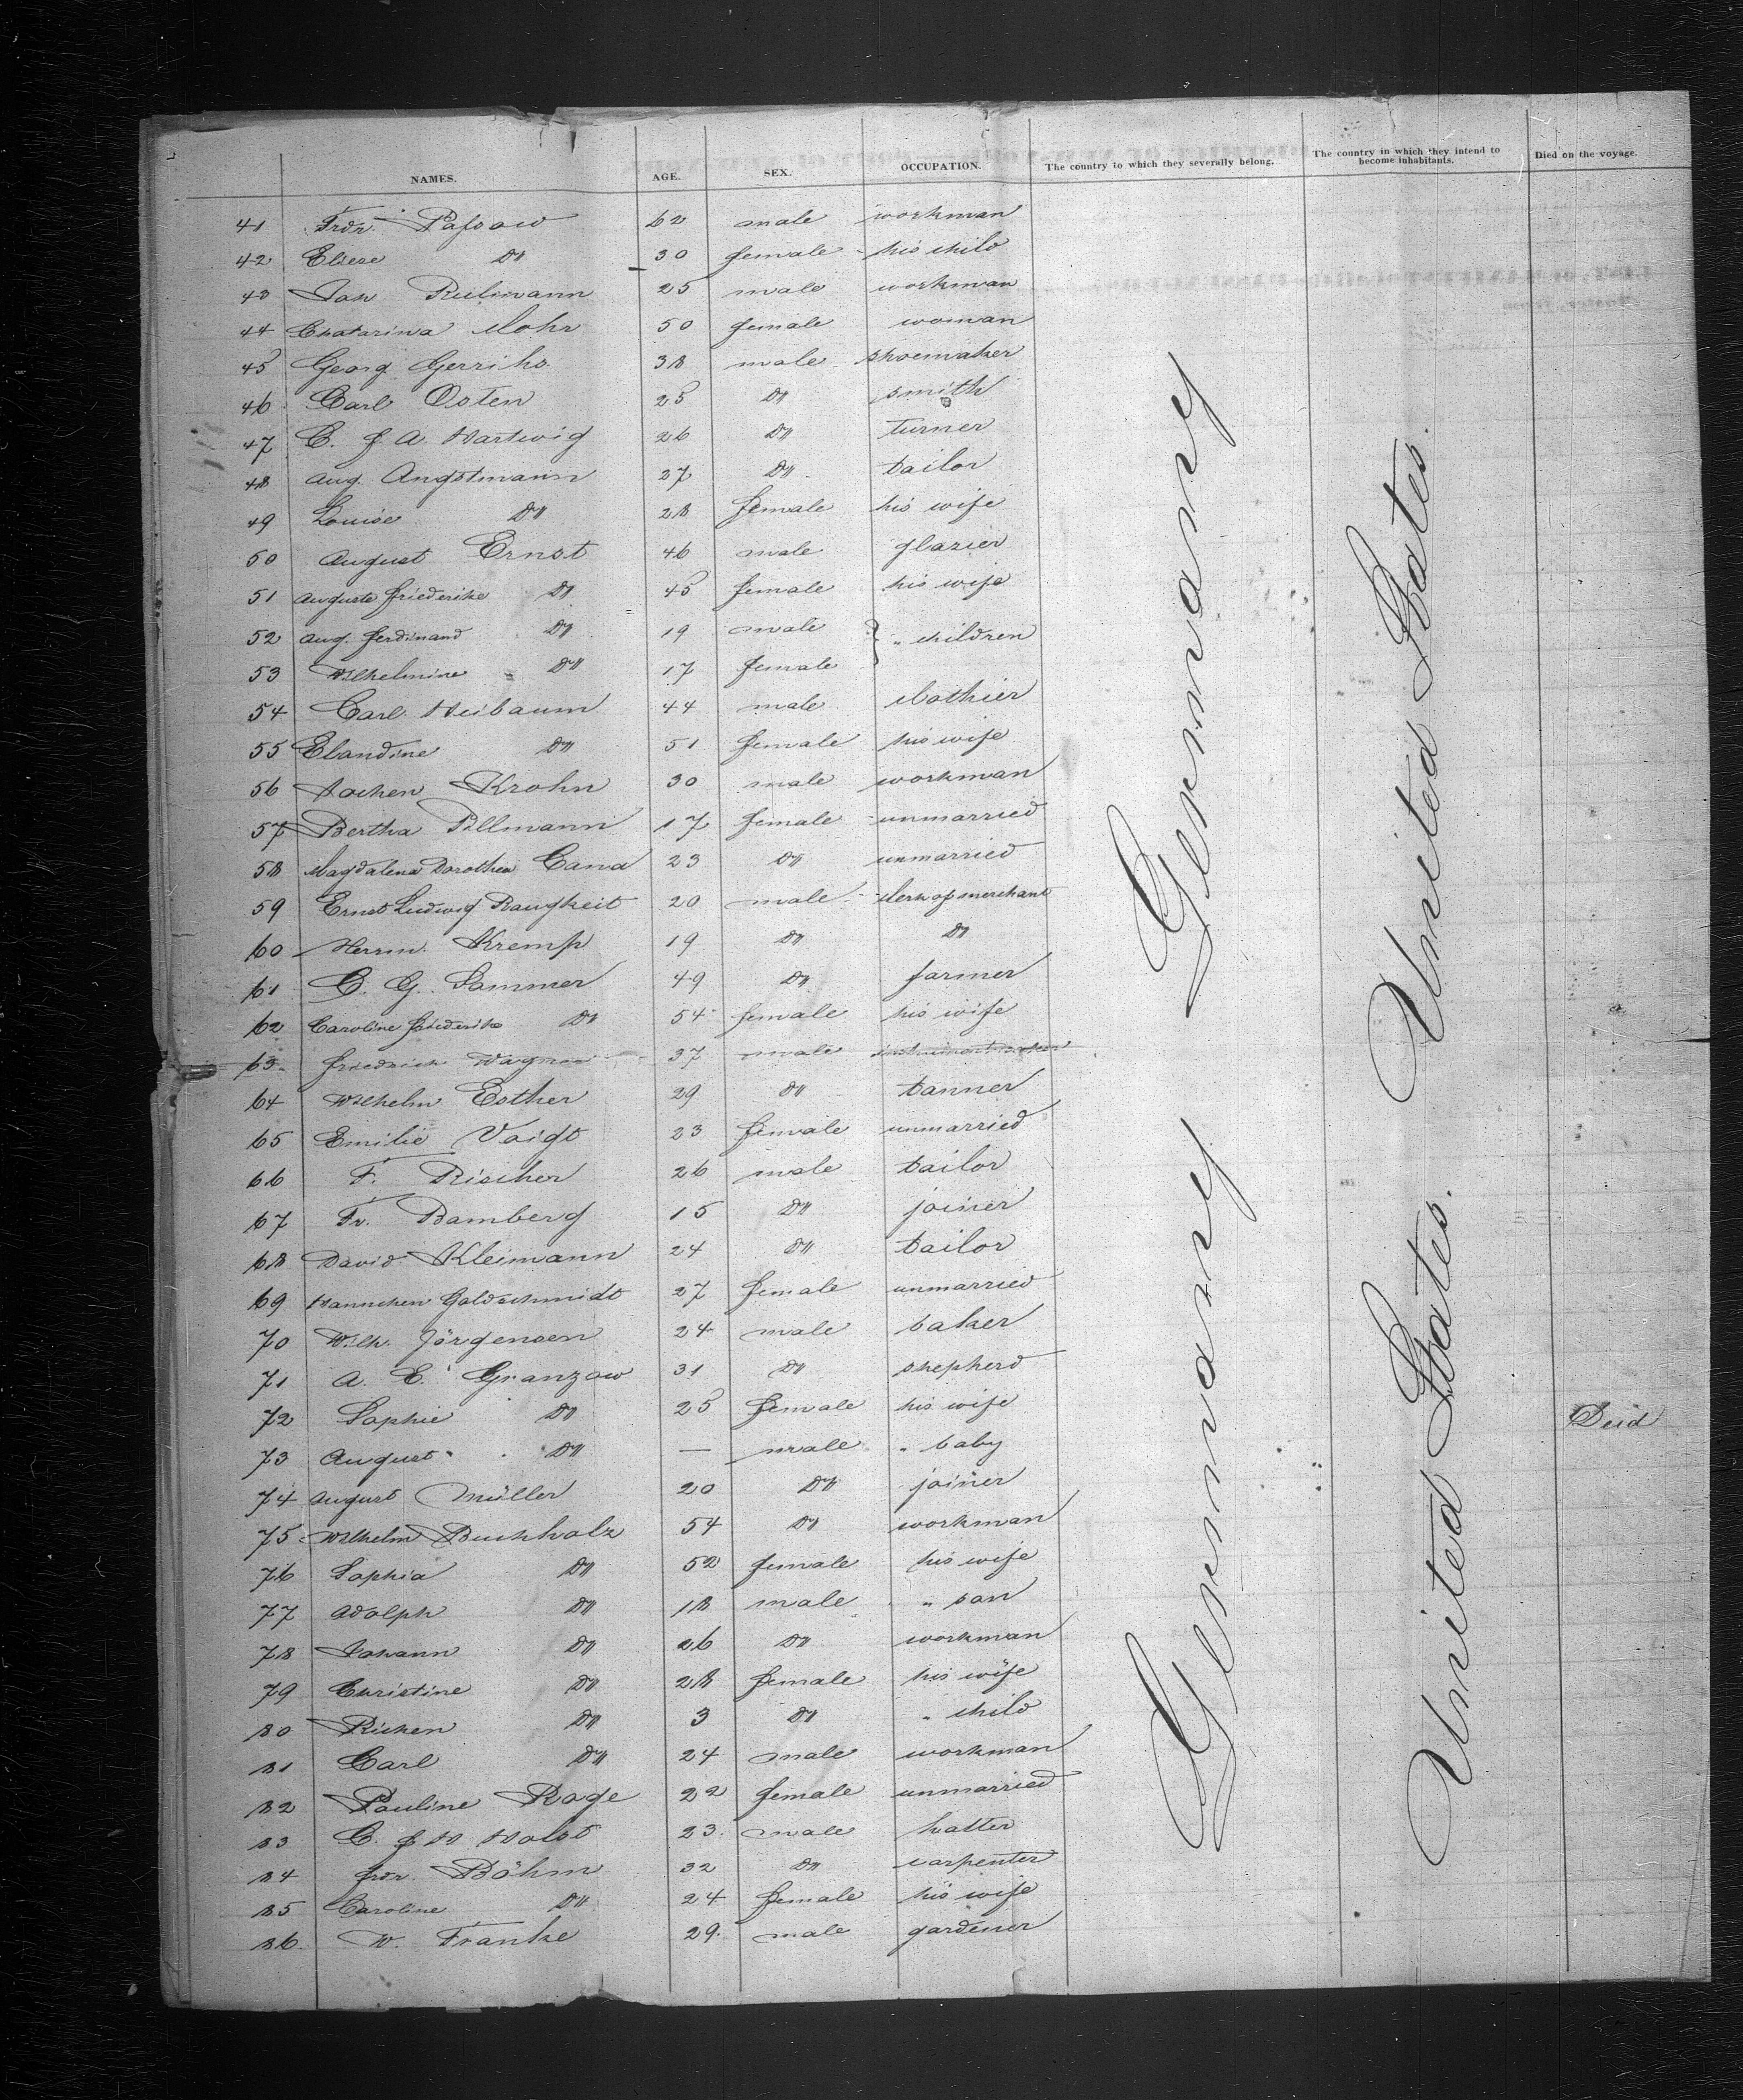 NAMES. AGE. SEX. OCCUPATION. The country to which they severally belong. The country in which they intend to become inhabitants. Died on the voyage.
41 Frdr. Passow 62 male workman
42 Eliese Do 30 female his child
43 Joh Rulmann 25 male workman
44 Chatarina Mohr 50 female woman
45 Georg Gerriks 38 male shoemaker
46 Carl Osten 25 Do smith
47 C. J A. Hartwig 26 Do turner
48 Aug. Angstmann 27 Do tailor
49 Louise Do 28 female his wife
50 August Ernst 46 male glazier
51 Auguste Friederike Do 45 female his wife
52 Aug. Ferdinand Do 19 male " children
53 Wilhelmine Do 17 female
54 Carl Heibaum 44 male clothier
55 Blandine Do 51 female his wife
56 Jochen Krohn 30 male workman
57 Bertha Pillmann 17 female unmarried
58 Magdalena Dorothea Cana 23 Do unmarried
59 Ernst Ludwig Raugkeit 20 male clerk of merchant
60 Herrm. Kremp 19 Do Do
61 C. G. Sammer 49 Do farmer
62 Caroline Friederike Do 54 female his wife
63 Friedrich Wagner 37 male instrumentmaker
64 Wilhelm Esther 29 Do tanner
65 Emilie Voigt 23 female unmarried
66 F. Rischer 26 male tailor
67 Fr. Bamberg 15 Do joiner
68 David Kleimann 24 Do tailor
69 Hannchen Goldschmidt 27 female unmarried
70 Wilh. Jörgensen 24 male baker
71 A. E. Granzow 31 Do shepherd
72 Sophie Do 25 female his wife Deid
73 August Do — male " baby
74 August Müller 20 Do joiner
75 Wilhelm Buchholz 54 Do workman
76 Sophia Do 52 female his wife
77 Adolph Do 18 male " son
78 Johann Do 26 Do workman
79 Christine Do 28 female his wife
80 Richen Do 3 Do " child
81 Carl Do 24 male workman
82 Pauline Roge 22 female unmarried
83 C. J H Holst 23. male hatter
84 Frdr. Böhm 32 Do carpenter
85 Caroline Do 24 female his wife
86. W. Franke 29. male gardener
Germany
Germany
United States.
United States.